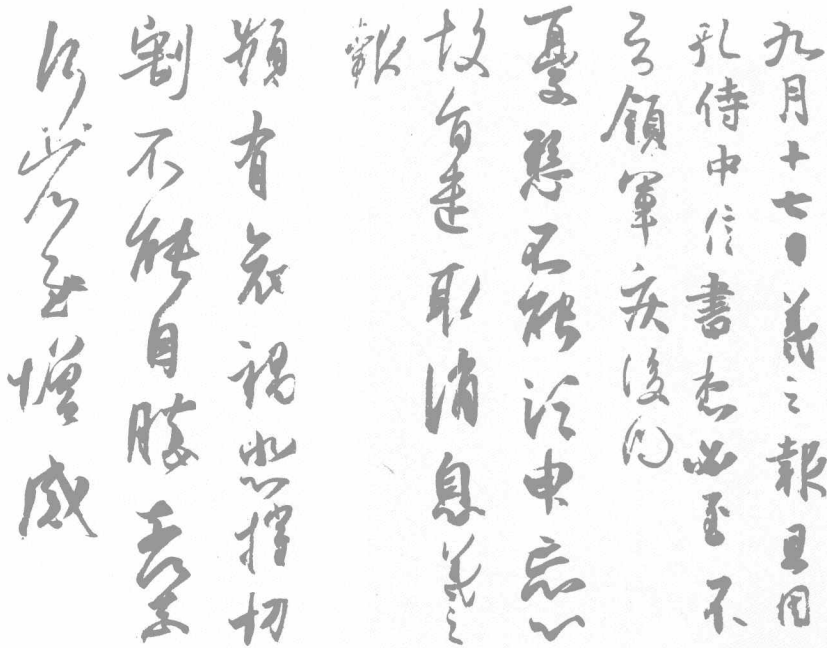 九月十七日羲之報且因
孔侍中信書想必至不
知領軍疾後問
憂懸不能須臾忘心
故旨遣取消息羲之
報
頻有哀禍悲摧切
割不能自勝奈何奈
何省慰增感